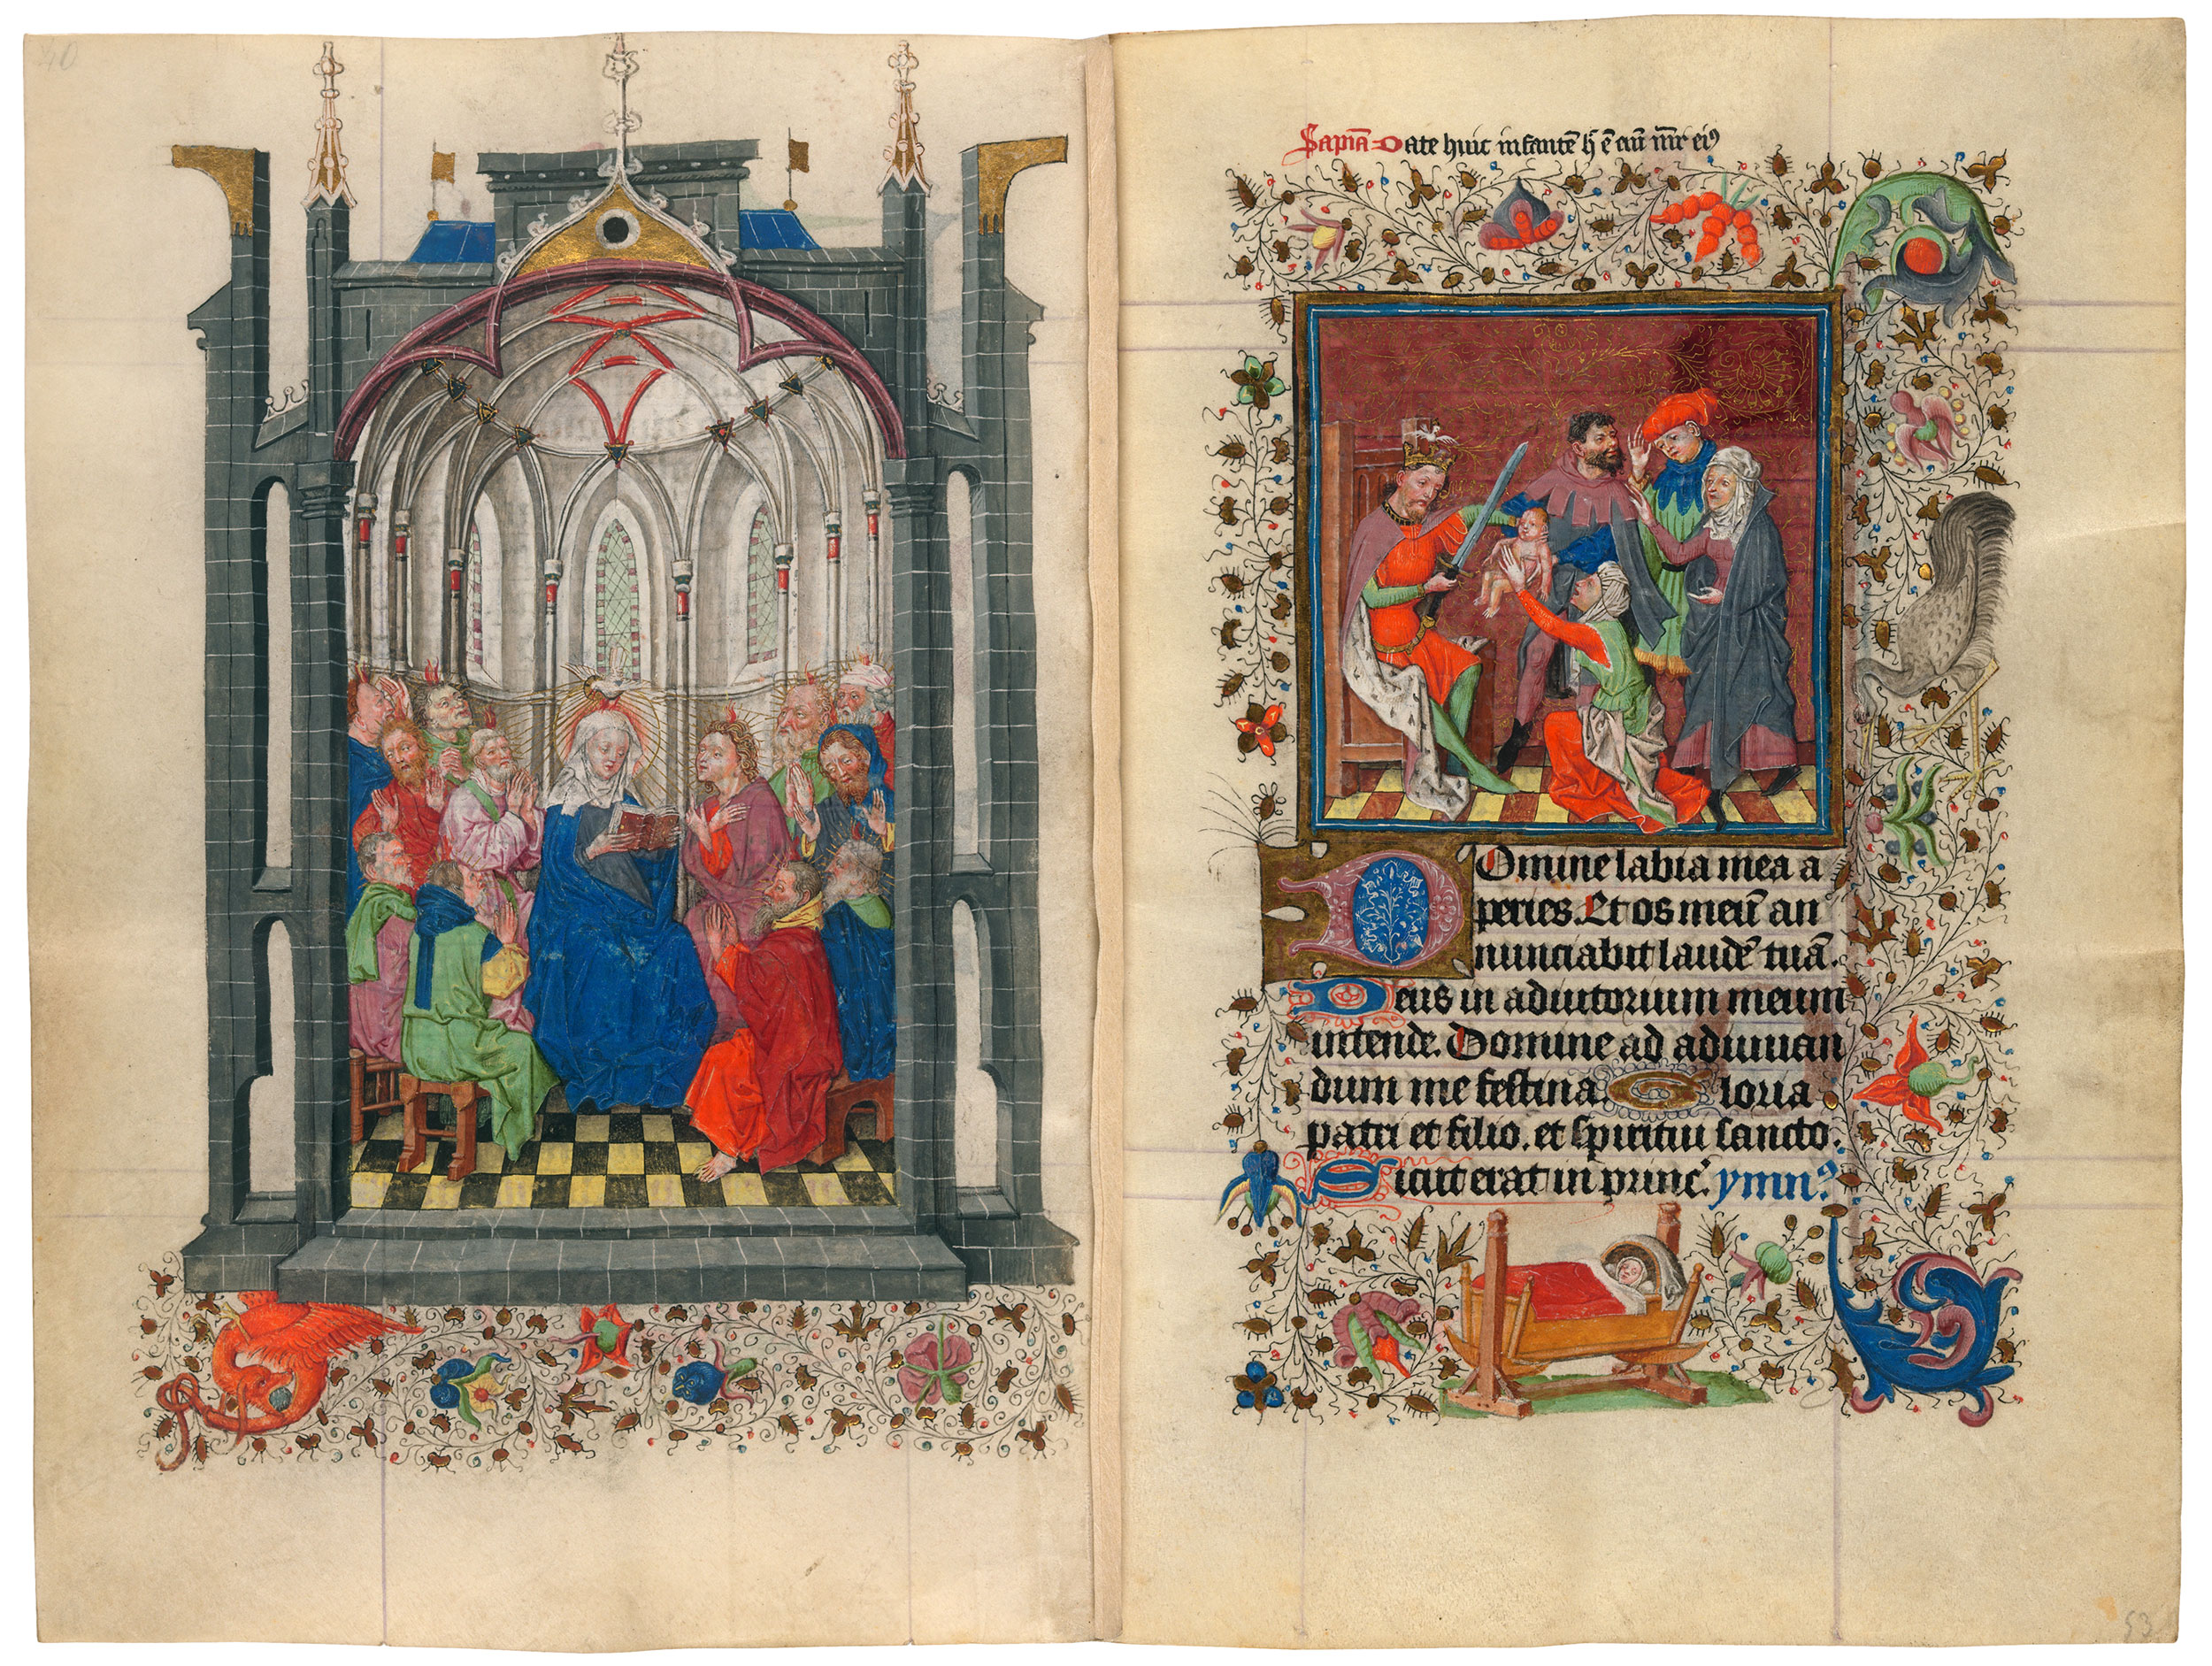 40
Sapiã Date huic infantē h̄ ē aũ mr̄ eiꝰ
Domine labia mea a
peries. Et os meū an
nunciabit laudē tuā.
Deus in adiutorium meum
intende. Domine ad adiuuan
dum me festina. Gloria
patri et filio. et spiritui sancto.
Sicut erat in princ̓. ymnꝰ
53